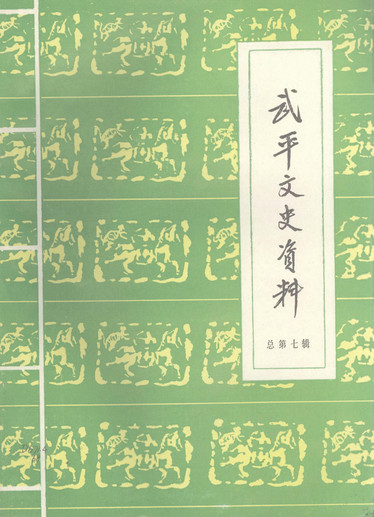 武平文史资料
总第七辑